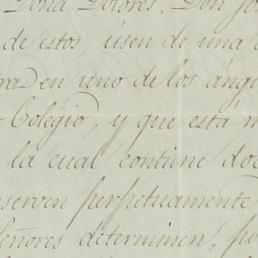 Doña Dolores, Don Jo
de estos, úsen de una
ra en uno de los áng
Colegio, y que está m
la cual contiene doc
eserven perpetuamente
eñores determinen, po